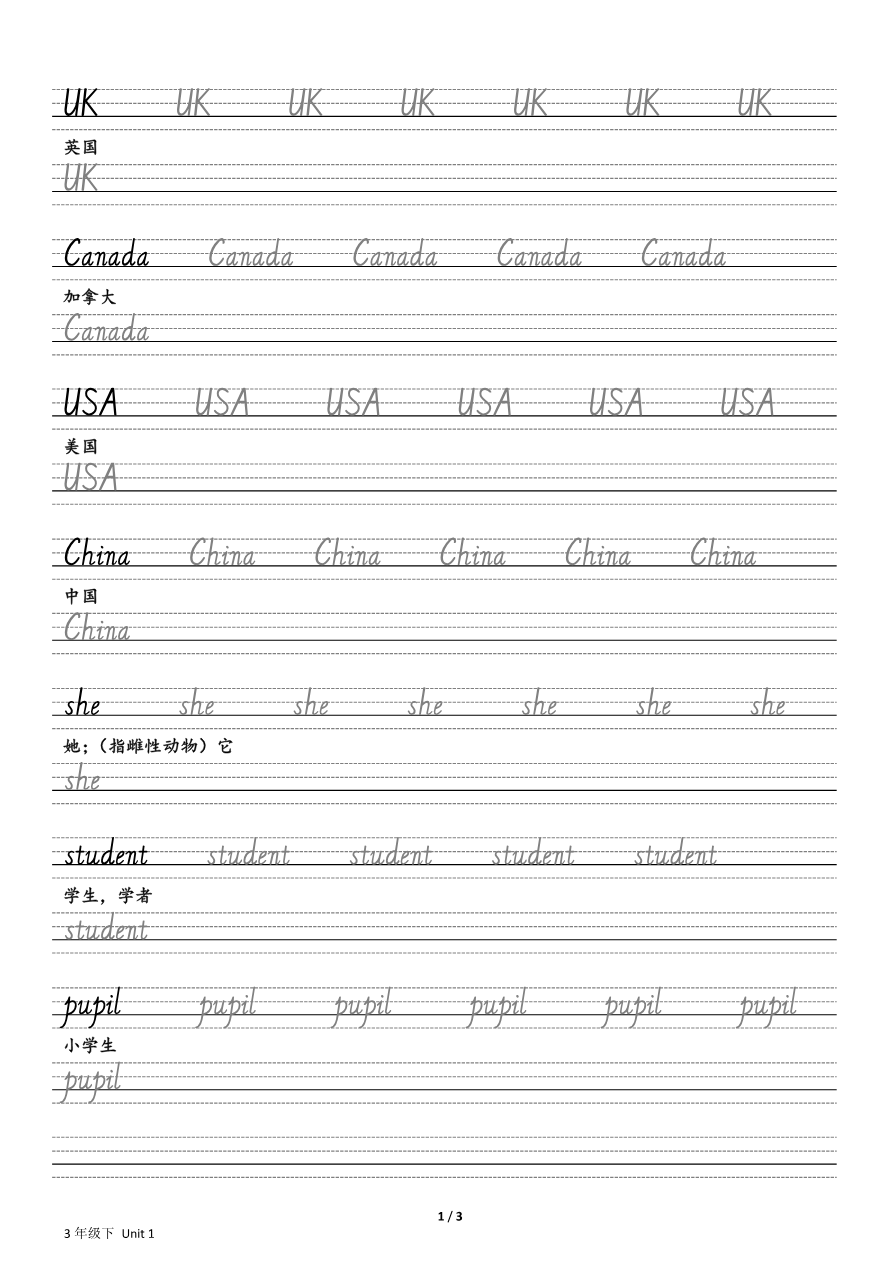 UK UK UK UK UK UK UK
英国
UK
Canada Canada Canada Canada Canada
加拿大
Canada
USA USA USA USA USA USA
美国
USA
China China China China China China
中国
China
she she she she she she she
她；（指雌性动物）它
she
student student student student student
学生，学者
student
pupil pupil pupil pupil pupil pupil
小学生
pupil
1 / 3
3 年级下 Unit 1